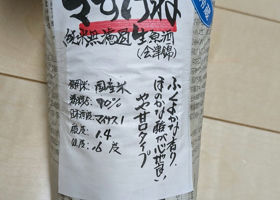 純米無濾過生原酒
（会津錦）
ふくよかな香り、
ほのかな酸が心地良い
やや甘口タイプ
原料米：国産米
精米歩合：90%
日本酒度：マイナス1
酸度：1.4
度：16度